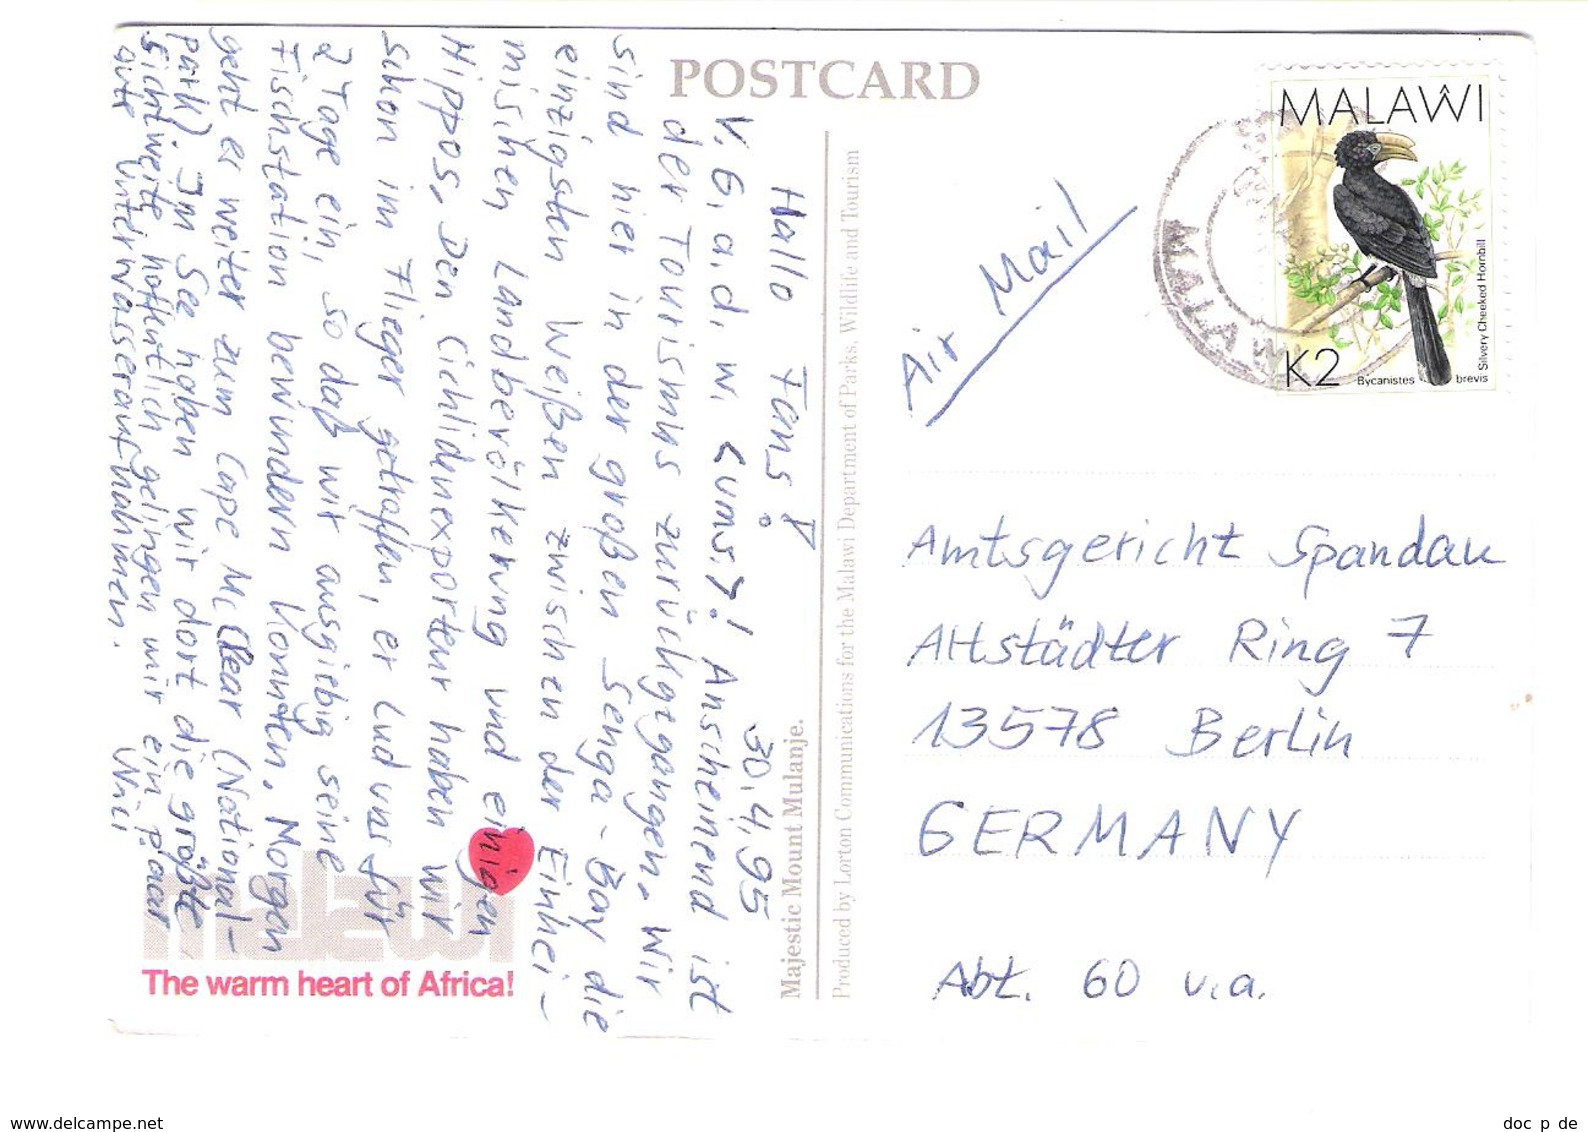 POSTCARD
MALAŴI
K2
Bycanistes brevis
Silvery Cheeked Hornbill
MALAWI
Air Mail
Amtsgericht Spandau
Altstädter Ring 7
13578 Berlin
GERMANY
Abt. 60 u.a.
Majestic Mount Mulanje.
Produced by Lorton Communications for the Malawi Department of Parks, Wildlife and Tourism
30.4.95
Hallo Fans!
V. G. a. d. w. <ums.>! Anscheinend ist
der Tourismus zurückgegangen. Wir
sind hier in der großen Senga-Bay die
einzigsten Weißen zwischen der Einhei-
mischen Landbevölkerung und einigen
Hippos. Den Cichlidenexporteur haben wir
schon im Flieger getroffen, er lud uns für
2 Tage ein, so daß wir ausgiebig seine
Fischstation bewundern konnten. Morgen
geht es weiter zum Cape McClear (National-
park). Im See haben wir dort die größte
Sichtweite, hoffentlich gelingen mir ein paar
gute Unterwasseraufnahmen.
malawi
The warm heart of Africa!
www.delcampe.net
doc p de